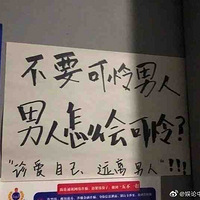 不要可怜男人
男人怎么会可怜?
"珍爱自己 远离男人"!!!
@娱论中